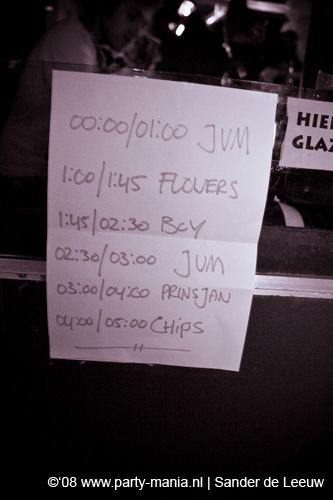 00:00/01:00 JVM
1:00/1:45 FLOVERS
1:45/02:30 BOY
02:30/03:00 JVM
03:00/04:00 PRINSJAN
04:00/05:00 CHIPS
HIE
GLAZ
©'08 www.party-mania.nl | Sander de Leeuw